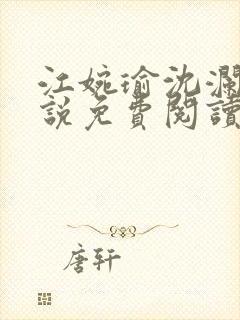 江婉瑜沈瀾
說免費閱讀
唐轩